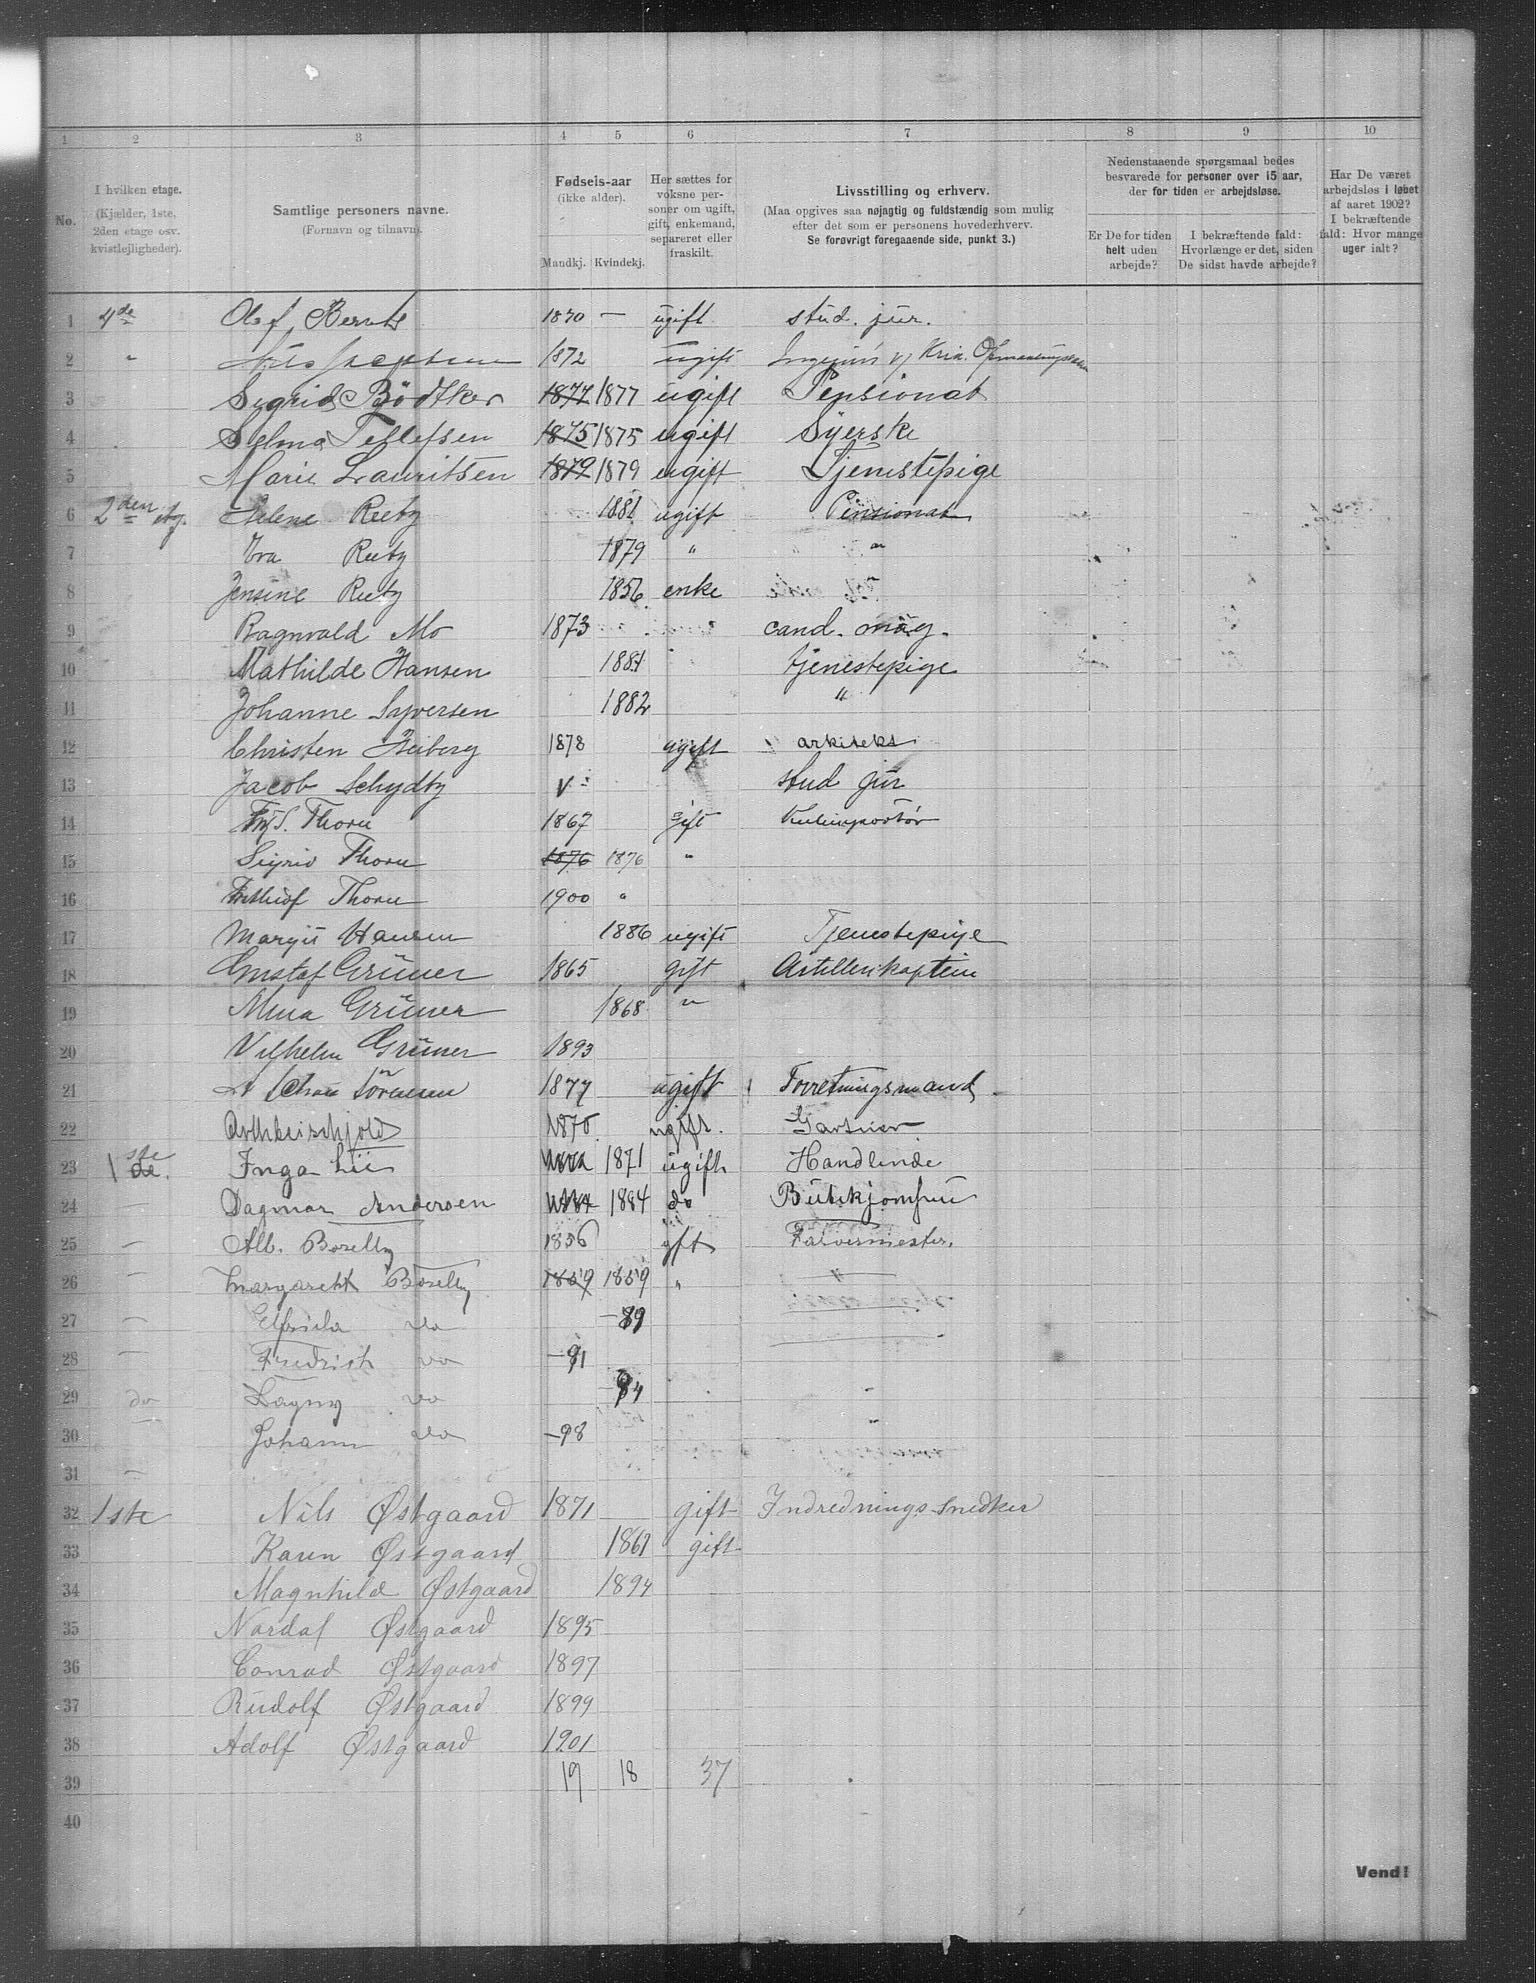 1 2 3 4 5 6 7 8 9 10
No.
I hvilken etage.
(Kjælder, 1ste,
2den etage osv.
kvistlejligheder).
Samtlige personers navne.
(Fornavn og tilnavn).
Fødsels-aar
(ikke alder).
Mandkj. Kvindekj.
Her sættes for
voksne per-
soner om ugift,
gift, enkemand,
separeret eller
fraskilt.
Livsstilling og erhverv.
(Maa opgives saa nøjagtig og fuldstændig som mulig
efter det som er personens hovederhverv.
Se forøvrigt foregaaende side, punkt 3.)
Nedenstaaende spørgsmaal bedes
besvarede for personer over 15 aar,
der for tiden er arbejdsløse.
Er De for tiden
helt uden
arbejde?
I bekræftende fald:
Hvorlænge er det, siden
De sidst havde arbejde?
Har De været
arbejdsløs i løbet
af aaret 1902?
I bekræftende
fald: Hvor mange
uger ialt?
1 4de Olaf Bernts 1870 — ugift stud. jur.
2 " 1872 ugift
3 Sigrid Bödtker 1877 1877 ugift Pensionat
4 Selma Tellefsen 1875 1875 ugift Syerske
5 Marie Lauritsen 1879 1879 ugift Tjenestepige
6 2den etg. Helene 1881 ugift Pensionat
7 1879 " "
8 Jensine 1856 enke
9 Ragnvald Mo 1873 cand. mag.
10 Mathilde Hansen 1881 tjenestepige
11 Johanne Syversen 1882 "
12 Christen Heiberg 1878 ugift arkitekt
13 Jacob Schydtz stud jur
14 Thorn 1867 gift
15 Sigrid Thorn 1876 1876 "
16 Thorn 1900 "
17 Margit Hansen 1886 ugift Tjenestepige
18 Gustaf Grüner 1865 gift Artillerikaptein
19 Mina Grüner 1868 "
20 Vilhelm Grüner 1893
21 Sörensen 1877 ugift Forretningsmand
22 ugift. Gartner
23 1ste de. Inga Lie 1871 ugift Handlende
24 — Dagmar Andersen 1884 do Butikjomfru
25 — Alb. Boselly 1856 gift Farvermester.
26 — Margareth Boselly 1859 1859 " "
27 — do —89
28 — Fredrich do —91
29 do Dagny do
30 Johann do —98
31 —
32 1ste Nils Østgaard 1871 gift Indrednings Snedker
33 Karen Østgaard 1867 gift
34 Magnhild Østgaard 1894
35 Nordal Østgaard 1895
36 Conrad Østgaard 1897
37 Rudolf Østgaard 1899
38 Adolf Østgaard 1901
39 19 18 37
40
Vend!